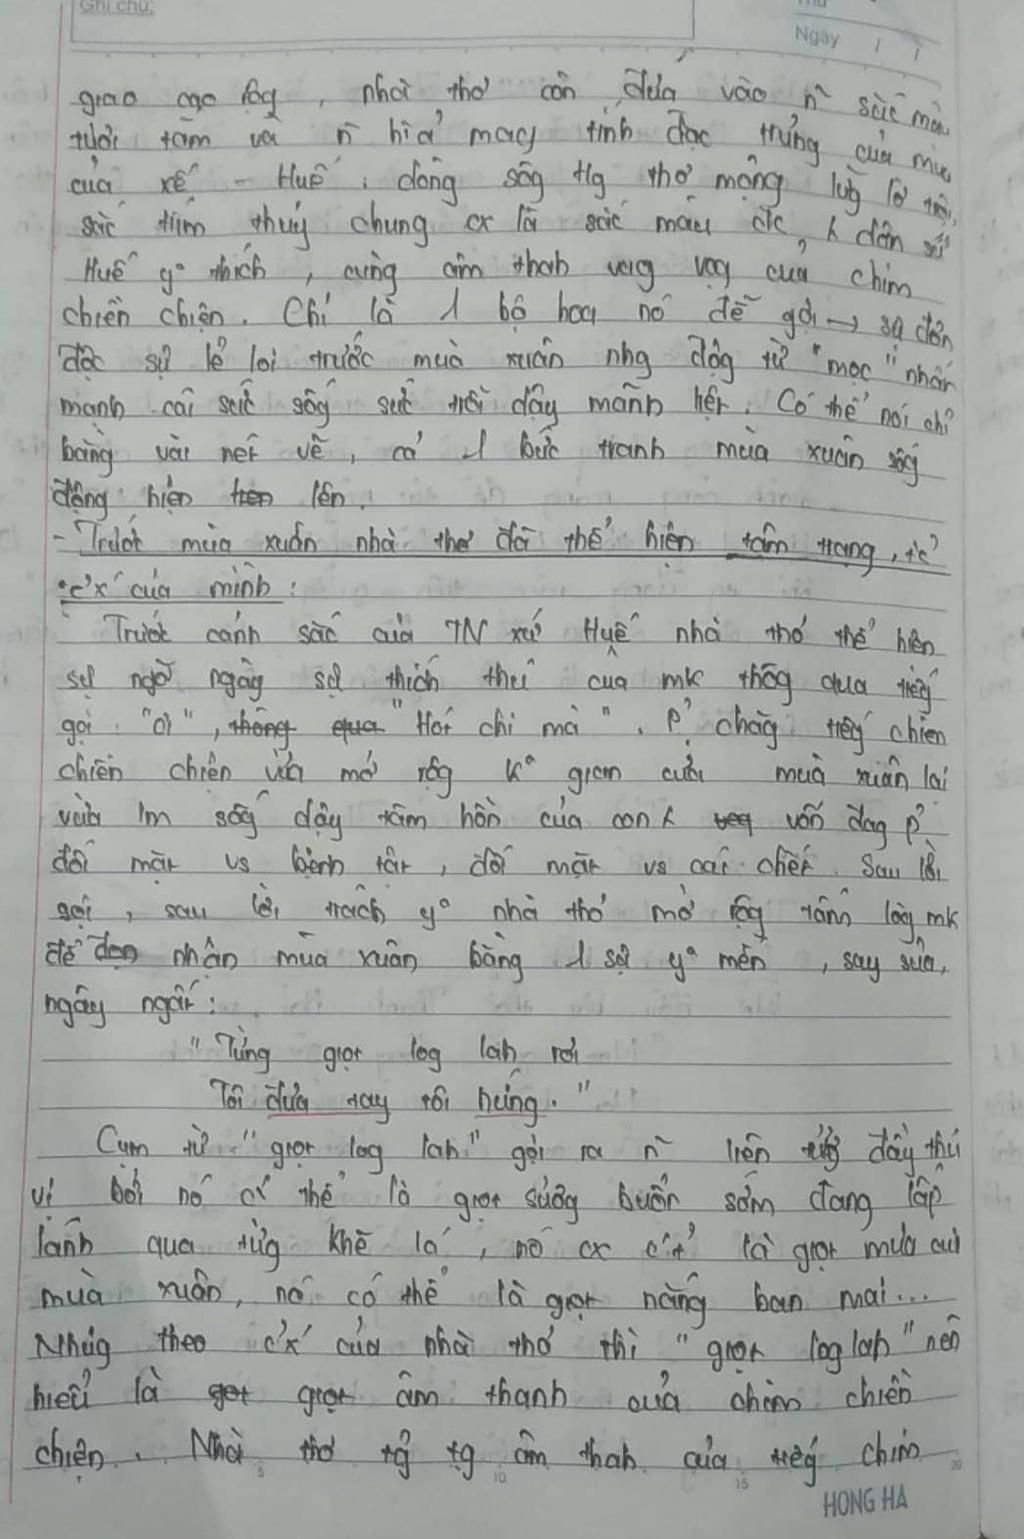 Ghi chú:
Thứ
Ngày / /
giao cạo rộg, nhà thơ còn đưa vào n~ sắc màu
tươi tắm và n~ hìả mag tính đạc trưng của mùa
của xế - Huế: dòng sôg Hg thơ mộng lữg lờ trôi,
sắc tím thủy chung cx là sắc màu đc, k dân xứ
Huế yº thích, cùng âm thah vag vọg của chim
chiền chiện. Chỉ là 1 bộ hoa nó dễ gợi → sự đơn
độc sự lẻ loi trước mùa xuân nhg độg từ "mọc" nhấn
mạnh cái sức sốg sức trỗi dậy mãnh liệt. Có thể nói chỉ
bằng vài nét vẽ, cả 1 bức tranh mùa xuân sốg
động hiện trên lên.
- Trước mùa xuân nhà thơ đã thể hiện tâm trạng, t/c'
c'x' của mình:
Trước cảnh sắc của TN xứ Huế nhà thơ thể hiện
sự ngỡ ngàg sự thích thú của mk thôg qua tiếg
gọi "ơi", thông qua "Hót chi mà". P' chăg tiếg chiền
chiền chiện vừa mở rộg kº gian của mùa xuân lại
vừa lm sốg dậy tâm hồn của con k vốn đag p'
đối mặt vs bệnh tật, đối mặt vs cái chết. Sau lời
gọi, sau lời trách yº nhà thơ mở rộg tấm lòg mk
để đón nhận mùa xuân bằng 1 sự yº mến, say sưa,
ngây ngất:
"Từng giọt log lah rơi
Tôi đưa tay tôi hứng."
Cụm từ "giọt log lah" gợi ra n~ liên tưởg đầy thú
vị bởi nó cí thể là giọt sươg buổi sớm đang lấp
lánh qua từg khẽ lá, nó cx c't' là giọt mưa của
mùa xuân, nó có thể là giọt nắng ban mai...
Nhưg theo c'x' của nhà thơ thì "giọt log lah" nên
hiểu là got giọt âm thanh của chim chiền
chiện. Nhà thơ tg~ tg âm thah của tiếg chim
5 10 15 20
HONG HA